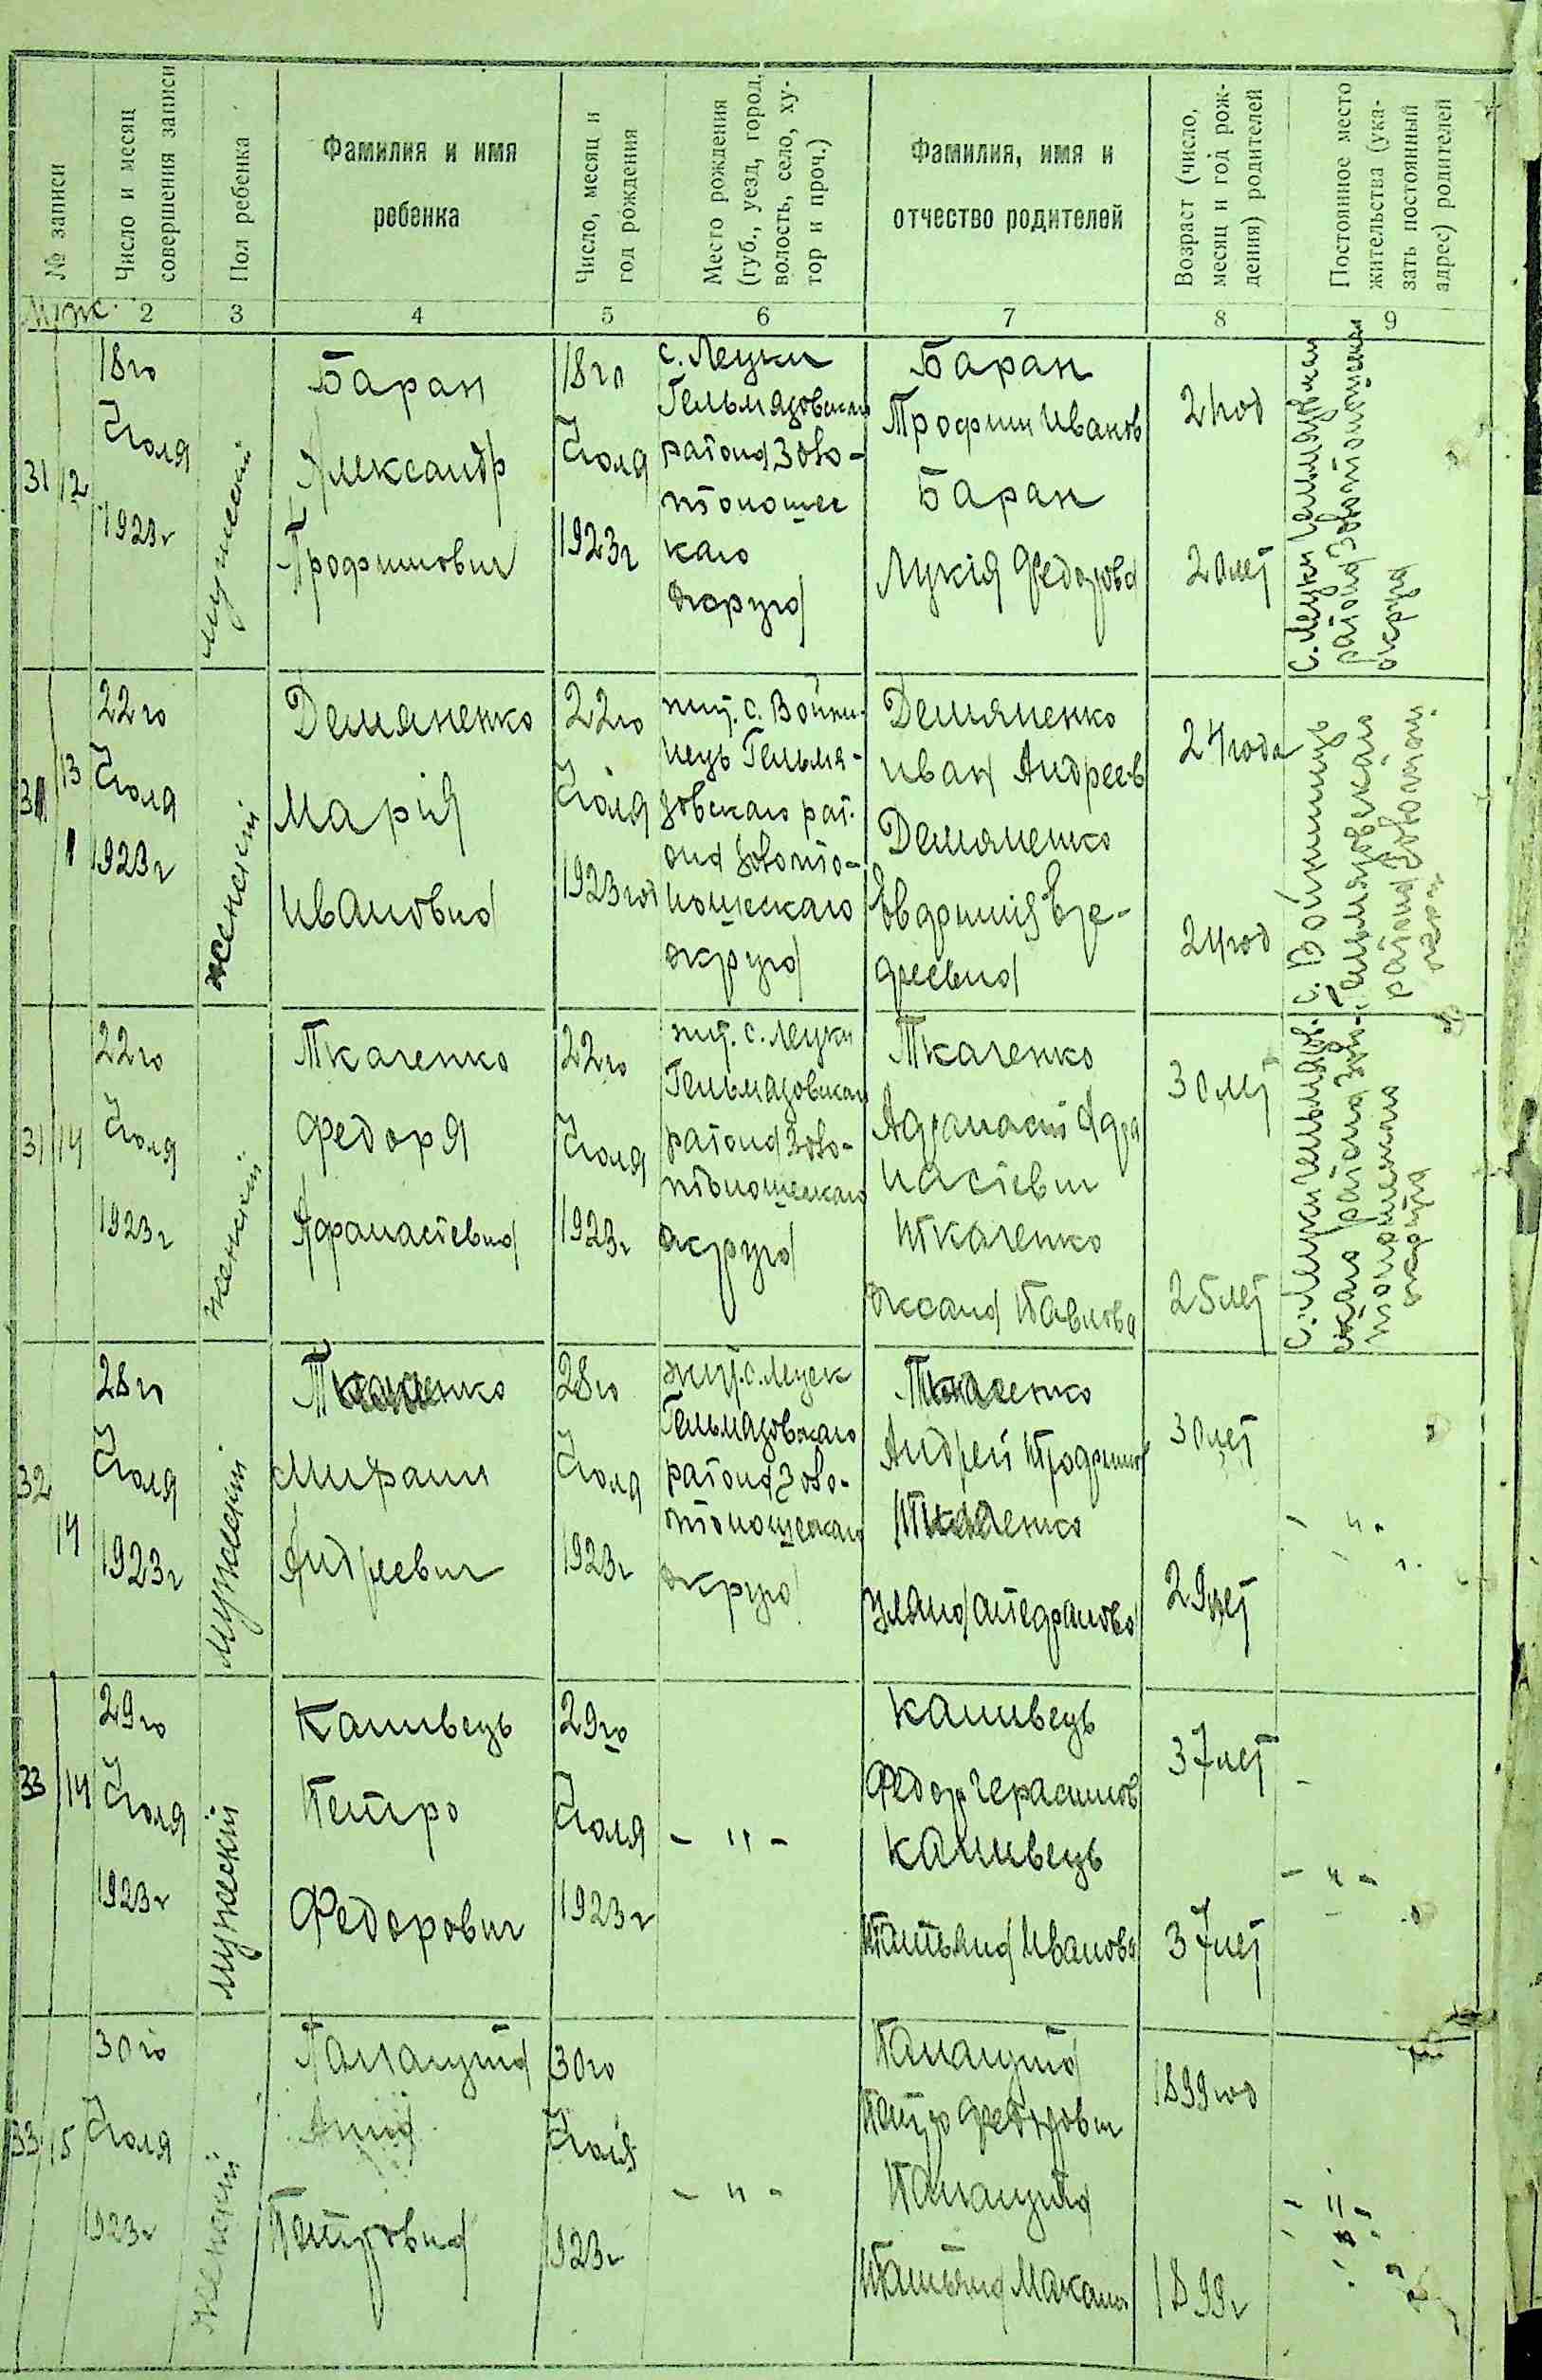 № записи
Число и месяц
совершения записи
Пол ребенка
Фамилия и имя
ребенка
Число, месяц и
год рождения
Место рождения
(губ., уезд, город,
волость, село, ху-
тор и проч.)
Фамилия, имя и
отчество родителей
Возраст (число,
месяц и год рож-
дения) родителей
Постоянное место
жительства (ука-
зать постоянный
адрес) родителей
Муж. 2 3 4 5 6 7 8 9
31/12
18го
Июля
1923г
мужескій
Баран
Александр
Трофимович
18го
Июля
1923г
с. Лецки
Гельмязовскаго
района Золо-
тоношес
каго
округа
Баран
Трофим Иванов
Баран
Лукія Федорова
21год
20лет
с. Лецки Гельмязовскаго
района Золотоношескаго
округа
31 13
22го
Июля
1923г
женскій
Демяненко
Марія
Ивановна
22го
Июля
1923год
жит. с. Войни-
нець Гельмя-
зовскаго рай-
она Золото-
ношескаго
округа
Демяненко
Иван Андреев
Демяненко
24года
21год
района Золотонош.
31/14
22го
Июля
1923г
женскій
Ткаченко
Федоря
Афанасіевна
22го
Июля
1923г
жит. с. Лецки
Гельмязовскаго
района Золо-
тоношескаго
округа
Ткаченко
Афанасій Афа
насіевич
Ткаченко
Оксана Павлова
30лет
25лет
с. Лецки Гельмязов-
скаго района Золо-
тоношескаго
округа
32
14
28го
Июля
1923г
мужескій
Андреевич
28го
Июля
1923г
жит. с. Лецек
Гельмязовскаго
района Золо-
тоношескаго
округа
Андрей Трофимов
30лет
29лет
- " -
33/14
29го
Июля
1923г
мужескій
Кашивець
Петро
Федорович
29го
Июля
1923г
- " -
Кашивець
Федор Герасимов
Кашивець
Татьяна Иванова
37лет
37лет
- " -
33/15
30го
Июля
1923г
женскій
Анна
Петровна
30го
Июля
1923г
- " -
Петро Федорович
Татьяна
1899год
1899г
- " -